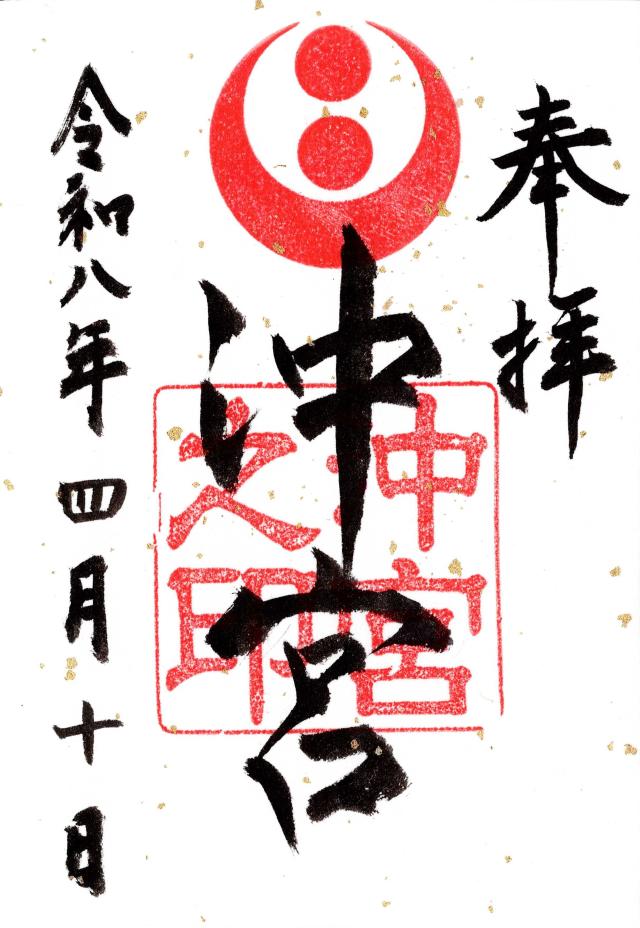 奉拝
沖宮
沖宮
之印
令和八年 四月十日